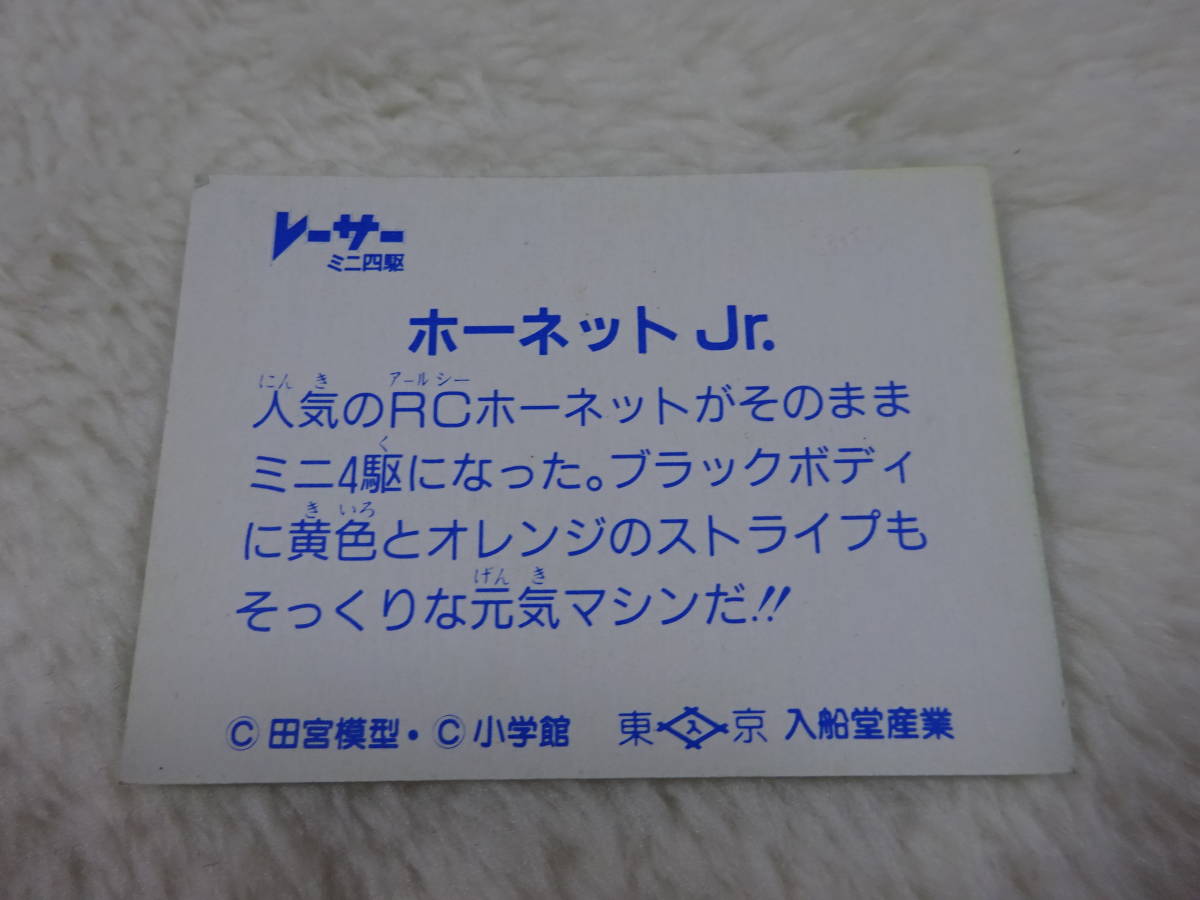 レーサー
ミニ四駆
ホーネット Jr.
にん き アールシー
人気のRCホーネットがそのまま
く
ミニ4駆になった。ブラックボディ
き いろ
に黄色とオレンジのストライプも
げん き
そっくりな元気マシンだ!!
© 田宮模型・© 小学館 東 入 京 入船堂産業